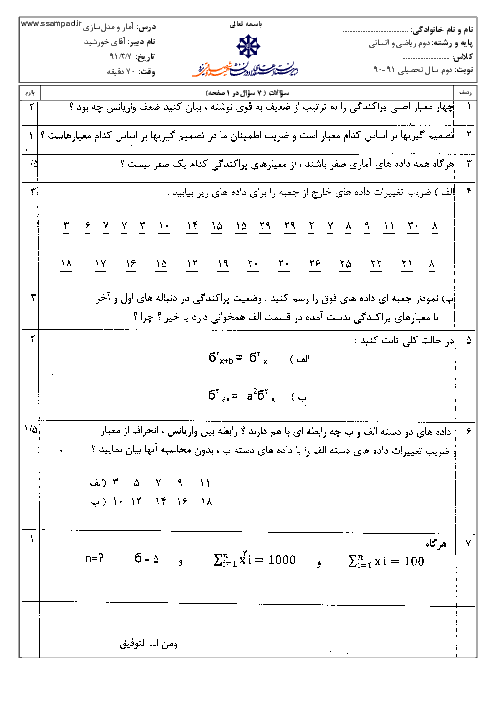 www.ssampad.ir
باسمه تعالی
نام و نام خانوادگی: ............................
پایه و رشته: دوم ریاضی و انسانی
کلاس: ............................
نوبت: دوم سال تحصیلی ۹۱-۹۰
درس: آمار و مدل سازی
نام دبیر: آقای خورشید
تاریخ: ۹۱/۳/۷
وقت: ۷۰ دقیقه
ردیف سؤالات (۷ سؤال در ۱ صفحه) بارم
۱ چهار معیار اصلی پراکندگی را به ترتیب از ضعیف به قوی نوشته ، بیان کنید ضعف واریانس چه بود ؟ ۲
۲ تصمیم گیریها بر اساس کدام معیار است و ضریب اطمینان ما در تصمیم گیریها بر اساس کدام معیارهاست ؟ ۱
۳ هرگاه همه داده های آماری صفر باشند ، از معیارهای پراکندگی کدام یک صفر نیست ؟ /۵
۴ الف ) ضریب تغییرات داده های خارج از جعبه را برای داده های زیر بیابید . ۳
۳ ۶ ۷ ۷ ۳ ۱۰ ۱۴ ۱۵ ۱۵ ۲۹ ۲۹ ۲ ۷ ۸ ۹ ۱۱ ۳۰ ۸
۱۸ ۱۷ ۱۶ ۱۵ ۱۲ ۱۹ ۲۰ ۲۰ ۲۶ ۲۵ ۲۲ ۲۱ ۸
ب) نمودار جعبه ای داده های فوق را رسم کنید . وضعیت پراکندگی در دنباله های اول و آخر ۳
با معیارهای پراکندگی بدست آمده در قسمت الف همخوانی دارد یا خیر ؟ چرا ؟
۵ در حالت کلی ثابت کنید : ۲
الف ) б²x+b = б²x
ب ) б²ax = a²б²x
۶ داده های دو دسته الف و ب چه رابطه ای با هم دارند ؟ رابطه بین واریانس ، انحراف از معیار ۱/۵
ضریب تغییرات داده های دسته الف را با داده های دسته ب ، بدون محاسبه آنها بیان نمایید ؟
الف) ۳ ۵ ۷ ۹ ۱۱
ب) ۱۰ ۱۲ ۱۴ ۱۶ ۱۸
۷ هرگاه ۱
n=? б = ۵ و ∑ⁿᵢ₌₁ x²i = 1000 و ∑ⁿᵢ₌₁ xi = 100
ومن الله التوفیق